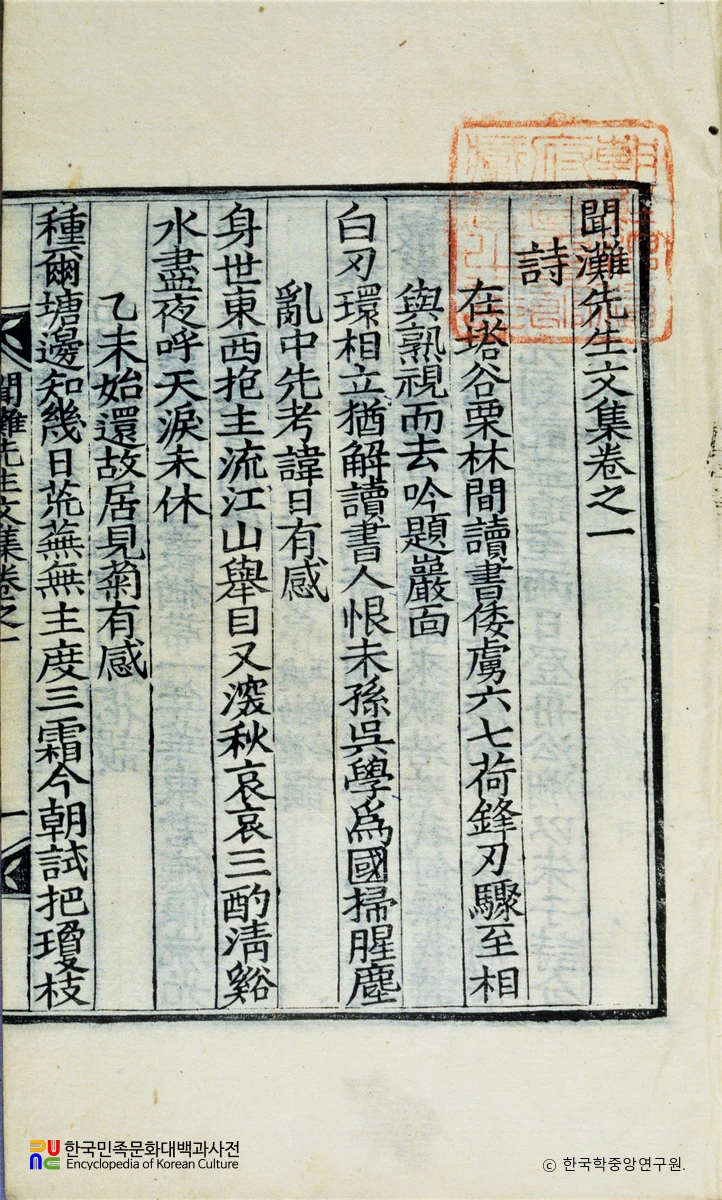 聞灘先生文集卷之一
詩
在塔谷栗林間讀書倭虜六七荷鋒刃驟至相
與熟視而去吟題巖面
白刃環相立猶解讀書人恨未孫吳學爲國掃腥塵
亂中先考諱日有感
身世東西抱主流江山擧目又滾秋哀哀三酌淸谿
水盡夜呼天淚未休
乙未始還故居見菊有感
種爾塘邊知幾日荒蕪無主度三霜今朝試把瓊枝
聞灘先生文集卷之一
一
한국민족문화대백과사전
Encyclopedia of Korean Culture
ⓒ 한국학중앙연구원.